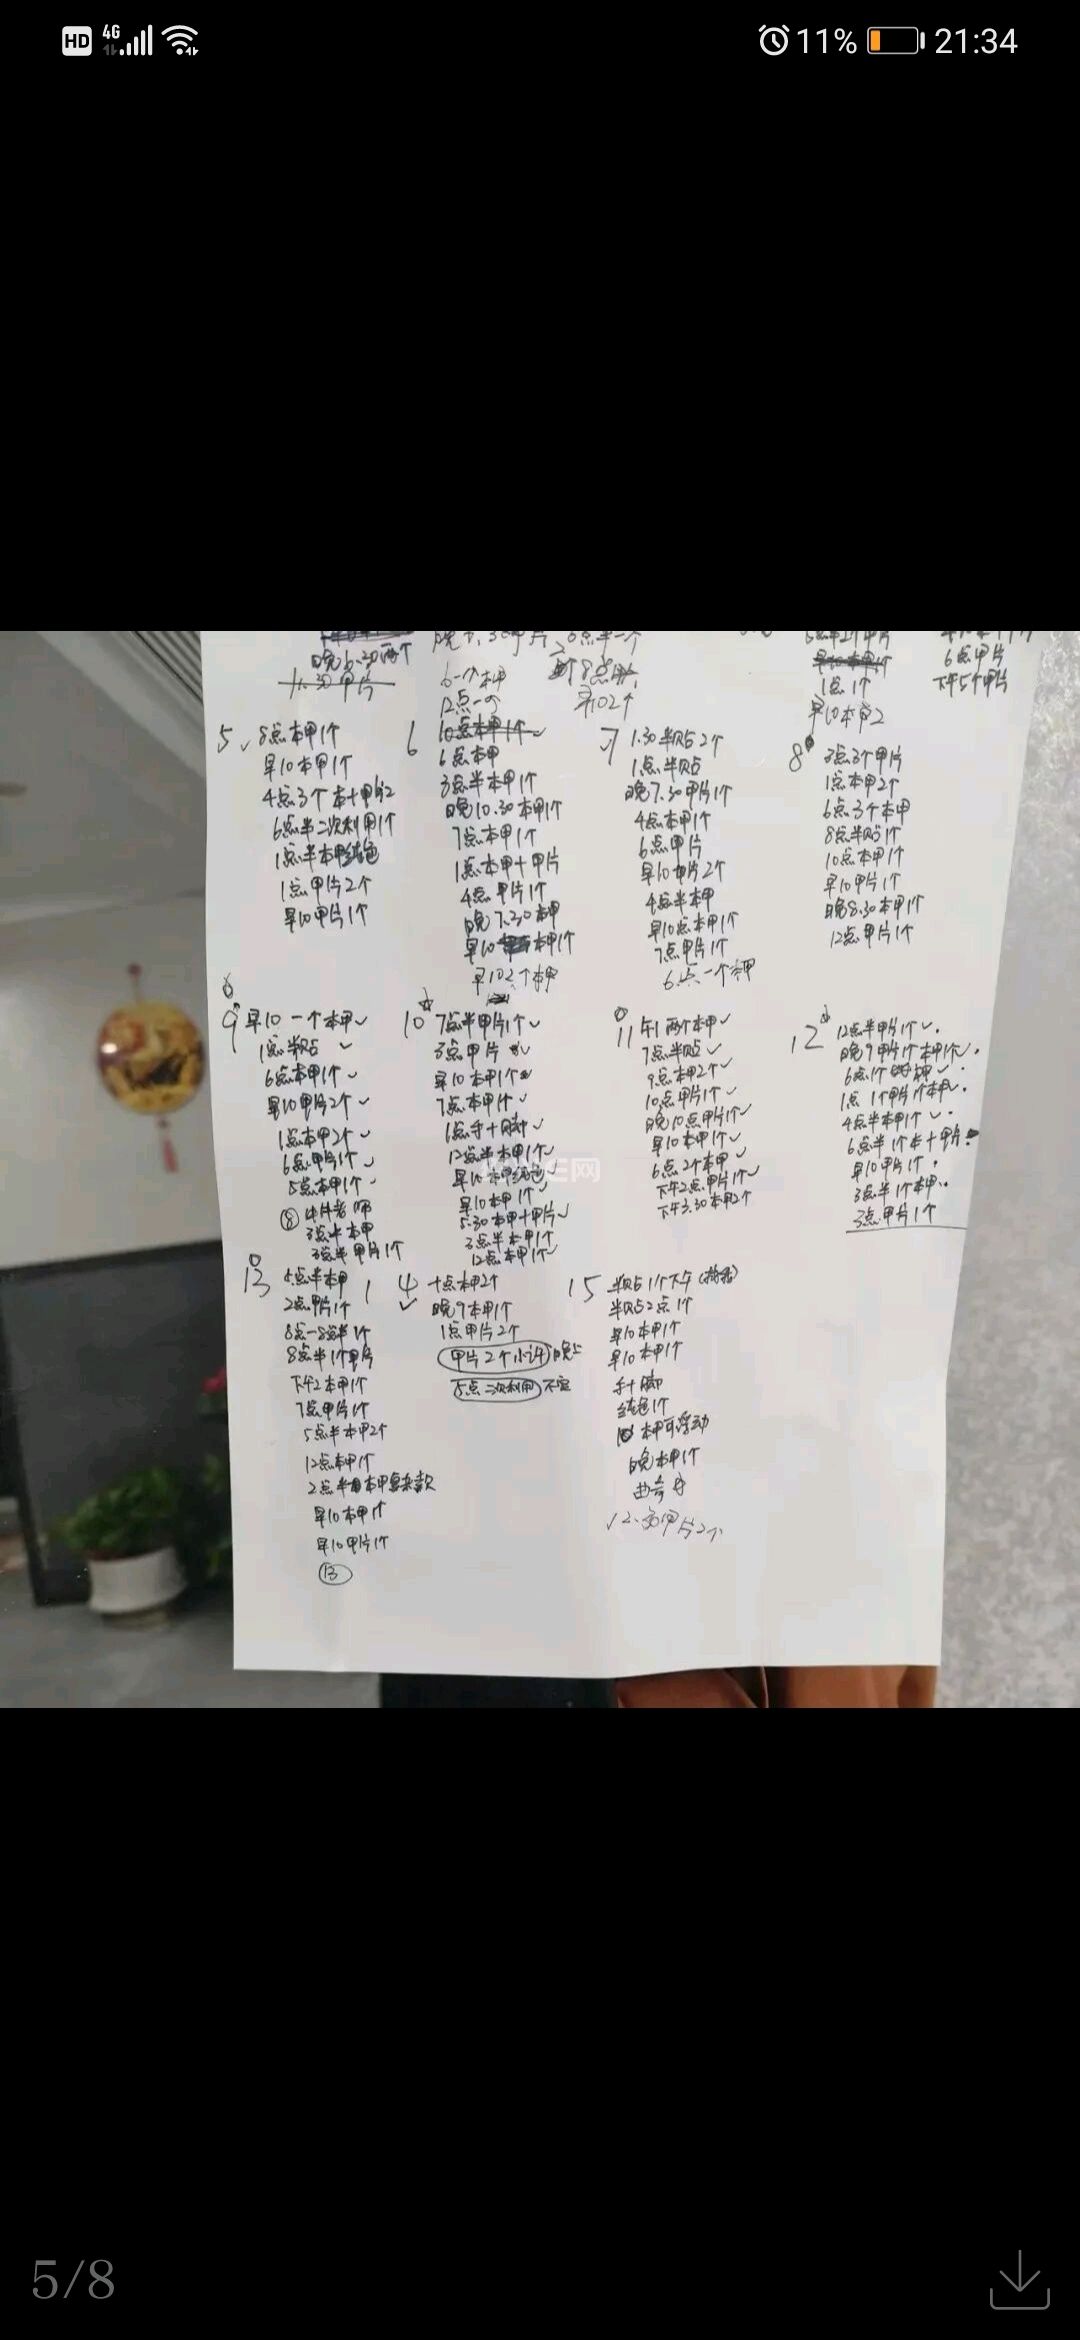 HD 4G 11% 21:34
晚6.30两个
11.30甲片
6一个本甲
12点一个
早102个
1点1个
早10本甲2
6点甲片
下午5个甲片
5
8点本甲1个
早10本甲1个
4点3个本+甲片2
6点半二次利用1个
1点半本甲纯色
1点甲片2个
早10甲片1个
6
10点本甲1个
6点本甲
3点半本甲1个
晚10.30本甲1个
7点本甲1个
1点本甲+甲片
4点甲片1个
晚7.30本甲
早10本甲1个
早102个本甲
7
1.30半贴2个
1点半贴
晚7.30甲片1个
4点本甲1个
6点甲片
早10甲片2个
4点半本甲
早10点本甲1个
7点甲片1个
6点一个本甲
8
3点3个甲片
1点本甲2个
6点3个本甲
8点半贴1个
10点本甲1个
早10甲片1个
晚8.30本甲1个
12点甲片1个
9
早10一个本甲✓
1点半贴✓
6点本甲1个✓
早10甲片2个✓
1点本甲2个✓
6点甲片1个✓
5点本甲1个✓
⑧
3点半本甲
3点半甲片1个
10
7点半甲片1个✓
3点甲片✓
早10本甲1个
7点本甲1个✓
1点手+脚✓
12点半本甲1个✓
早10本甲纯色
早10本甲1个✓
5.30本甲+甲片✓
3点半本甲1个
12点本甲1个✓
11
午1两个本甲✓
7点半贴✓
9点本甲2个✓
10点甲片1个✓
晚10点甲片1个✓
早10本甲1个✓
6点2个本甲✓
下午2点甲片1个✓
下午3.30本甲2个
12
12点半甲片1个✓
晚9甲片1个本甲1个✓
6点1个
1点1个甲片1个本甲✓
4点半本甲1个✓
6点半1个本+甲片
早10甲片1个
3点半1个本甲
3点甲片1个
13
5点半本甲
2点甲片1个
8点-8点半1个
8点半1个甲片
下午2本甲1个
7点甲片1个
5点半本甲2个
12点本甲1个
2点半本甲复杂款
早10本甲1个
早10甲片1个
⑬
14
十点本甲2个
晚9本甲1个
1点甲片2个
甲片2个小许 晚上
5点二次利用 不定
15
半贴1个下午
半贴2点1个
早10本甲1个
早10本甲1个
手+脚
纯色1个
本甲可浮动
晚本甲1个
12.30甲片2个
5/8